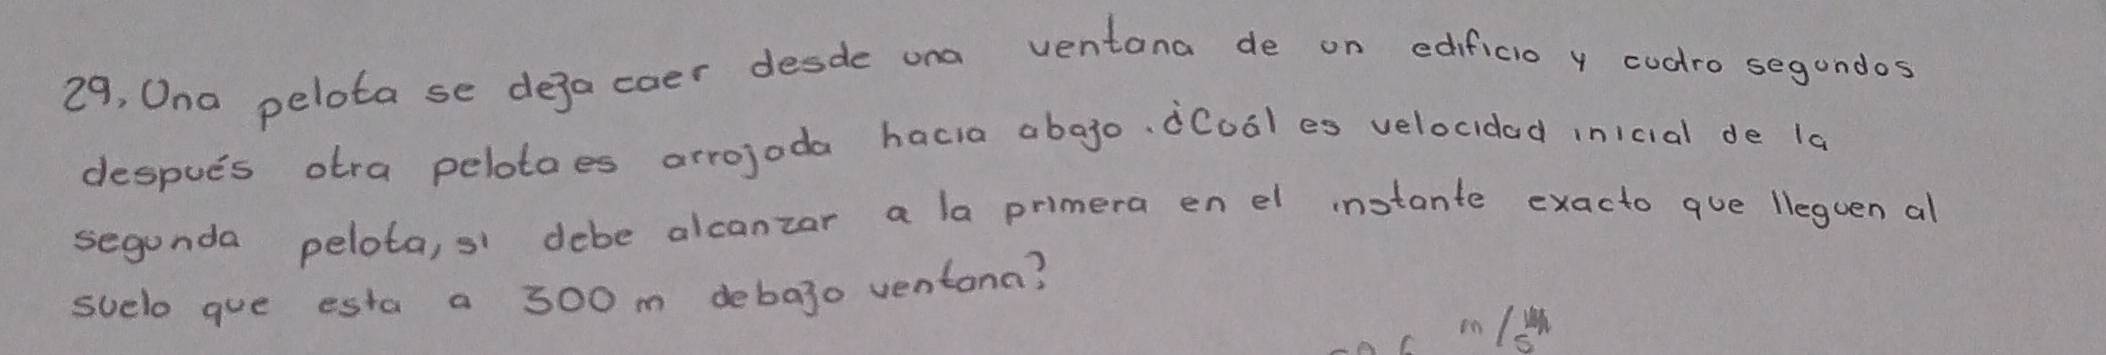 29. Una pelota se deja caer desde una ventana de un edificio y cuatro segundos
después otra pelota es arrojada hacia abajo. ¿Cuál es velocidad inicial de la
segunda pelota, si debe alcanzar a la primera en el instante exacto que lleguen al
suelo que esta a 300 m debajo ventana?
m/s